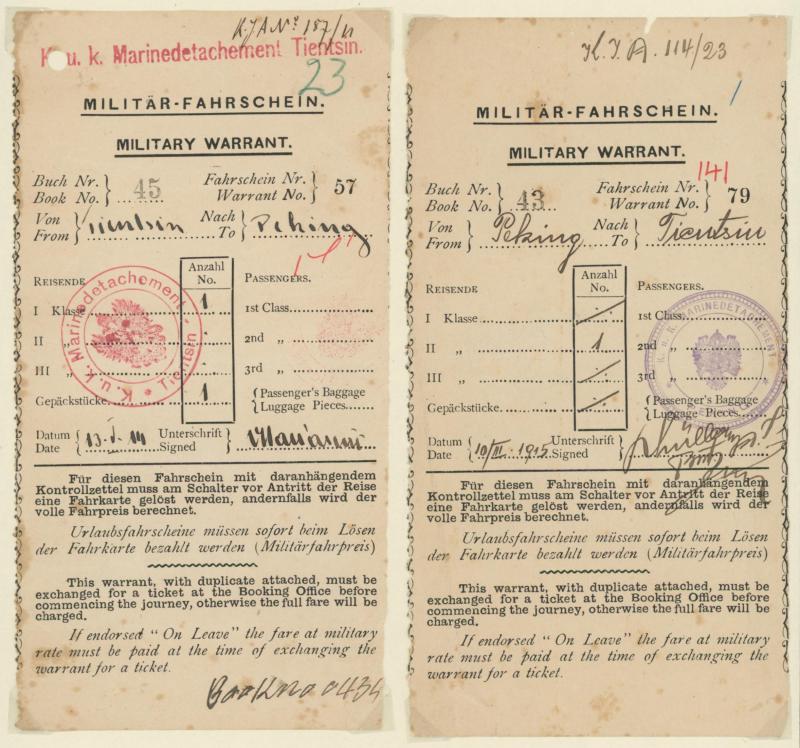 K.J.A Nº 187/11
K. u. k. Marinedetachement Tientsin.
23
MILITÄR-FAHRSCHEIN.
MILITARY WARRANT.
Buch Nr. } 45 Fahrschein Nr. } 57
Book No. Warrant No.
Von } Tientsin Nach } Peking
From To
REISENDE Anzahl No. PASSENGERS.
I Klasse 1 1st Class
II „ 2nd „
III „ 3rd „
Gepäckstücke 1 { Passenger's Baggage
Luggage Pieces
K. u. K. Marinedetachement Tientsin
Datum } Unterschrift }
Date Signed
Für diesen Fahrschein mit daranhängendem
Kontrollzettel muss am Schalter vor Antritt der Reise
eine Fahrkarte gelöst werden, andernfalls wird der
volle Fahrpreis berechnet.
Urlaubsfahrscheine müssen sofort beim Lösen
der Fahrkarte bezahlt werden (Militärfahrpreis)
This warrant, with duplicate attached, must be
exchanged for a ticket at the Booking Office before
commencing the journey, otherwise the full fare will be
charged.
If endorsed "On Leave" the fare at military
rate must be paid at the time of exchanging the
warrant for a ticket.
Book no 0434
K. J. A. 114/23
MILITÄR-FAHRSCHEIN.
MILITARY WARRANT.
141
Buch Nr. } 43 Fahrschein Nr. } 79
Book No. Warrant No.
Von } Peking Nach } Tientsin
From To
REISENDE Anzahl No. PASSENGERS.
I Klasse 1st Class
II „ 1 2nd „
III „ 3rd „
Gepäckstücke { Passenger's Baggage
Luggage Pieces
K. u. K. MARINEDETACHEMENT
Datum } 10/III. 1912 Unterschrift }
Date Signed
Für diesen Fahrschein mit daranhängendem
Kontrollzettel muss am Schalter vor Antritt der Reise
eine Fahrkarte gelöst werden, andernfalls wird der
volle Fahrpreis berechnet.
Urlaubsfahrscheine müssen sofort beim Lösen
der Fahrkarte bezahlt werden (Militärfahrpreis)
This warrant, with duplicate attached, must be
exchanged for a ticket at the Booking Office before
commencing the journey, otherwise the full fare will be
charged.
If endorsed "On Leave" the fare at military
rate must be paid at the time of exchanging the
warrant for a ticket.